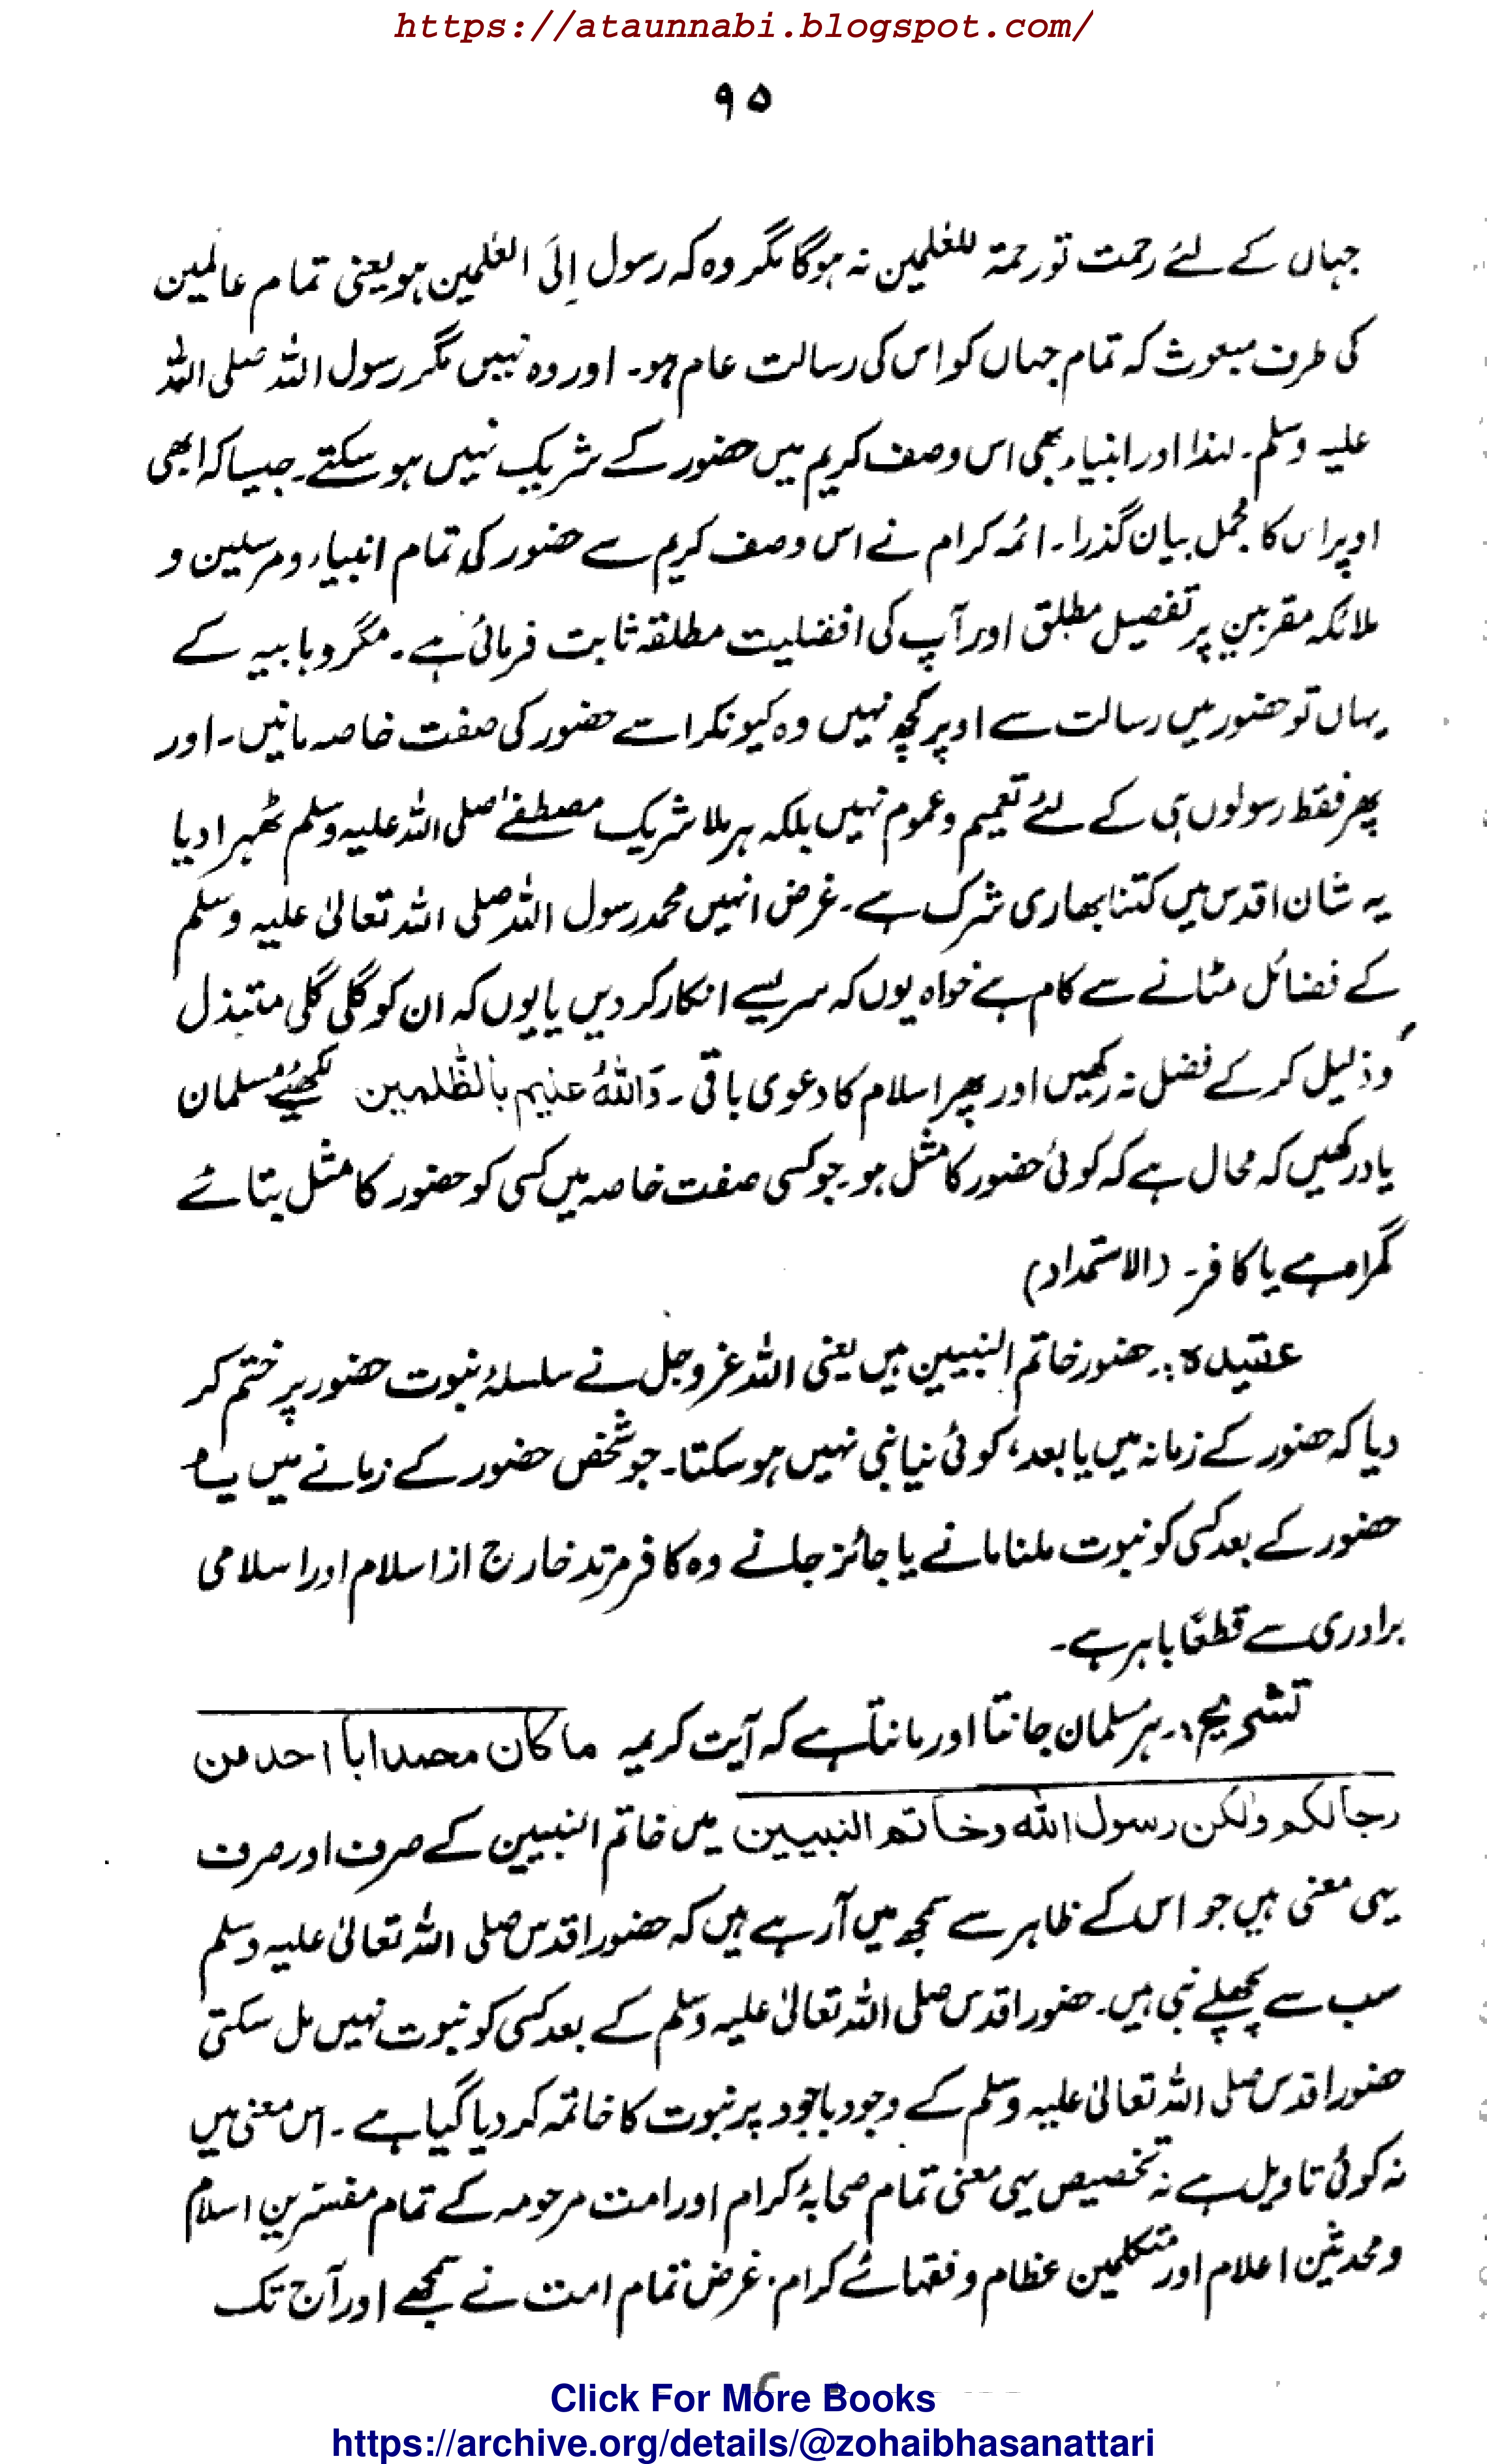 https://ataunnabi.blogspot.com/
۹۵
جہاں کے لئے رحمت تو رحمۃ للعٰلمین نہ ہوگا مگر وہ کہ رسول اِلَی العٰلمین ہو یعنی تمام عالمین
کی طرف مبعوث کہ تمام جہاں کو اس کی رسالت عام ہو۔ اور وہ نہیں مگر رسول اللہ صلی اللہ
علیہ وسلم۔ لہٰذا اور انبیاء بھی اس وصف کریم میں حضور کے شریک نہیں ہو سکتے۔ جیسا کہ ابھی
اوپر اس کا مجمل بیان گذرا۔ ائمہ کرام نے اس وصف کریم سے حضور کی تمام انبیاء و مرسلین و
ملائکہ مقربین پر تفصیل مطلق اور آپ کی افضلیت مطلقہ ثابت فرمائی ہے۔ مگر وہابیہ کے
یہاں تو حضور میں رسالت سے اوپر کچھ نہیں وہ کیونکر اسے حضور کی صفت خاصہ مانیں۔ اور
پھر فقط رسولوں ہی کے لئے تعمیم و عموم نہیں بلکہ ہر ملا شریک مصطفےٰ صلی اللہ علیہ وسلم ٹھہرا دیا
یہ شان اقدس میں کتنا بھاری شرک ہے۔ غرض انہیں محمد رسول اللہ صلی اللہ تعالیٰ علیہ وسلم
کے فضائل مٹانے سے کام ہے خواہ یوں کہ سریسے انکار کر دیں یا یوں کہ ان کو گلی گلی متبذل
و ذلیل کر کے فضل نہ رکھیں اور پھر اسلام کا دعوی باقی۔ وَاللّٰہُ علیم بالظّٰلمین لکھیے مسلمان
یاد رکھیں کہ محال ہے کہ کوئی حضور کا مثل ہو۔ جو کسی صفت خاصہ میں کسی کو حضور کا مثل بتائے
گمراہ ہے یا کافر۔ (الاستمداد)
عقیدہ:۔ حضور خاتم النبیین ہیں یعنی اللہ عز وجل نے سلسلۂ نبوت حضور پر ختم کر
دیا کہ حضور کے زمانہ میں یا بعد، کوئی نیا نبی نہیں ہو سکتا۔ جو شخص حضور کے زمانے میں یا
حضور کے بعد کسی کو نبوت ملنا مانے یا جائز جانے وہ کافر مرتد خارج از اسلام اور اسلامی
برادری سے قطعًا باہر ہے۔
تشریح:۔ ہر مسلمان جانتا اور مانتا ہے کہ آیت کریمہ ماکان محمد ابا احد من
رجالکم ولٰکن رسول اللّٰہ وخاتم النبیین میں خاتم النبیین کے صرف اور صرف
یہی معنی ہیں جو اس کے ظاہر سے سمجھ میں آ رہے ہیں کہ حضور اقدس صلی اللہ تعالیٰ علیہ وسلم
سب سے پچھلے نبی ہیں۔ حضور اقدس صلی اللہ تعالیٰ علیہ وسلم کے بعد کسی کو نبوت نہیں مل سکتی
حضور اقدس صلی اللہ تعالیٰ علیہ وسلم کے وجود باجود پر نبوت کا خاتمہ کر دیا گیا ہے۔ اس معنی میں
نہ کوئی تاویل ہے نہ تخصیص یہی معنی تمام صحابۂ کرام اور امت مرحومہ کے تمام مفسّرین اسلام
و محدثین اعلام اور متکلمین عظام و فقہائے کرام۔ غرض تمام امت نے سمجھے اور آج تک
Click For More Books
https://archive.org/details/@zohaibhasanattari